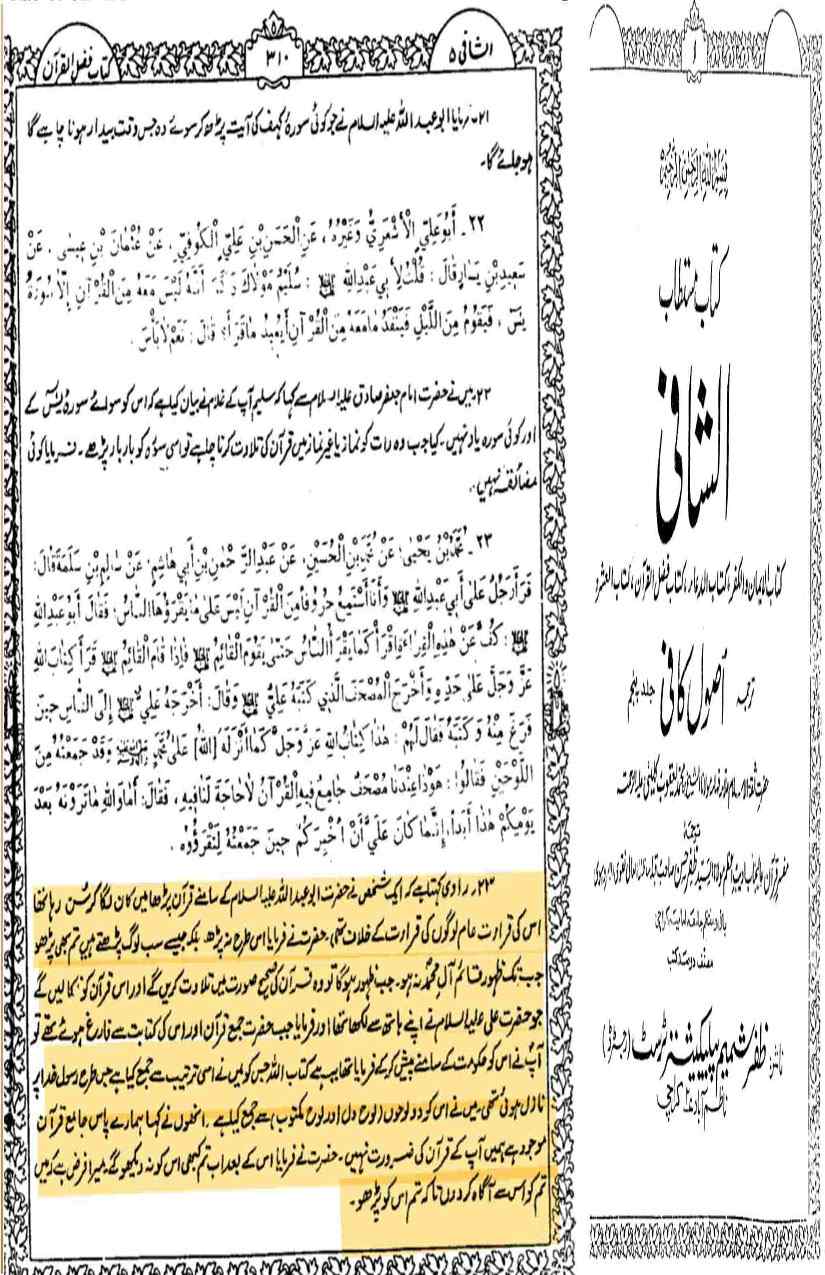 الشافی ۵
۳۱۰
کتاب فضل القرآن
۲۱۔ فرمایا ابو عبد اللہ علیہ السلام نے جو کوئی سورۂ کہف کی آیت پڑھ کر سوئے وہ جس وقت بیدار ہونا چاہے گا
ہو جائے گا۔
۲۲ ۔ أَبُوعَلِيٍّ الْأَشْعَرِيُّ وَغَيْرُهُ ، عَنِ الْحَسَنِ بْنِ عَلِيٍّ الْكُوفِيِّ ، عَنْ عُثْمَانَ بْنِ عِيسَى ، عَنْ
سَعِيدِ بْنِ يَسَارٍ قَالَ : قُلْتُ لِأَبِي عَبْدِاللهِ : سُلَيْمٌ مَوْلَاكَ ذَكَرَ أَنَّهُ لَيْسَ مَعَهُ مِنَ الْقُرْآنِ إِلَّا سُورَةُ
يٰسٓ ، فَيَقُومُ مِنَ اللَّيْلِ فَيَنْفَدُ مَا مَعَهُ مِنَ الْقُرْآنِ أَيُعِيدُ مَا قَرَأَ؟ قَالَ : نَعَمْ لَا بَأْسَ .
۲۲۔ میں نے حضرت امام جعفر صادق علیہ السلام سے کہا کہ سلیم آپ کے غلام نے بیان کیا ہے کہ اس کو سوائے سورۂ یٰسٓ کے
اور کوئی سورہ یاد نہیں۔ کیا جب وہ رات کو نماز یا غیر نماز میں قرآن کی تلاوت کرنا چاہے تو اسی سورہ کو بار بار پڑھے۔ فرمایا کوئی
مضائقہ نہیں۔
۲۳ ۔ مُحَمَّدُ بْنُ يَحْيَى، عَنْ مُحَمَّدِ بْنِ الْحُسَيْنِ، عَنْ عَبْدِ الرَّحْمٰنِ بْنِ أَبِي هَاشِمٍ، عَنْ سَالِمِ بْنِ سَلَمَةَ قَالَ:
قَرَأَ رَجُلٌ عَلَى أَبِي عَبْدِاللهِ وَأَنَا أَسْتَمِعُ حُرُوفًا مِنَ الْقُرْآنِ لَيْسَ عَلَى مَا يَقْرَؤُهَا النَّاسُ، فَقَالَ أَبُو عَبْدِاللهِ
: كُفَّ عَنْ هٰذِهِ الْقِرَاءَةِ اقْرَأْ كَمَا يَقْرَأُ النَّاسُ حَتَّى يَقُومَ الْقَائِمُ فَإِذَا قَامَ الْقَائِمُ قَرَأَ كِتَابَ اللهِ
عَزَّ وَجَلَّ عَلَى حَدِّهِ وَأَخْرَجَ الْمُصْحَفَ الَّذِي كَتَبَهُ عَلِيٌّ وَقَالَ: أَخْرَجَهُ عَلِيٌّ إِلَى النَّاسِ حِينَ
فَرَغَ مِنْهُ وَكَتَبَهُ فَقَالَ لَهُمْ : هٰذَا كِتَابُ اللهِ عَزَّ وَجَلَّ كَمَا أَنْزَلَهُ [اللهُ] عَلَى مُحَمَّدٍ وَقَدْ جَمَعْتُهُ مِنَ
اللَّوْحَيْنِ فَقَالُوا : هُوَ ذَا عِنْدَنَا مُصْحَفٌ جَامِعٌ فِيهِ الْقُرْآنُ لَا حَاجَةَ لَنَا فِيهِ ، فَقَالَ: أَمَا وَاللهِ مَا تَرَوْنَهُ بَعْدَ
يَوْمِكُمْ هٰذَا أَبَداً، إِنَّمَا كَانَ عَلَيَّ أَنْ أُخْبِرَكُمْ حِينَ جَمَعْتُهُ لِتَقْرَؤُوهُ .
۲۳۔ راوی کہتا ہے کہ ایک شخص نے حضرت ابو عبد اللہ علیہ السلام کے سامنے قرآن پڑھا میں کان لگا کر سن رہا تھا
اس کی قرارت عام لوگوں کی قرارت کے خلاف تھی۔ حضرت نے فرمایا اس طرح نہ پڑھ بلکہ جیسے سب لوگ پڑھتے ہیں تم بھی پڑھو
جب تک ظہور قائم آل محمدؐ نہ ہو۔ جب ظہور ہوگا تو وہ قرآن کی صحیح صورت میں تلاوت کریں گے اور اس قرآن کو نکالیں گے
جو حضرت علی علیہ السلام نے اپنے ہاتھ سے لکھا تھا اور فرمایا جب حضرت جمع قرآن اور اس کی کتابت سے فارغ ہوئے تھے تو
آپؑ نے اس کو حکومت کے سامنے پیش کر کے فرمایا تھا یہ ہے کتاب اللہ جس کو میں نے اسی ترتیب سے جمع کیا ہے جس طرح رسول خداؐ پر
نازل ہوئی تھی۔ میں نے اس کو دو لوحوں (لوح دل اور لوح مکتوب) سے جمع کیا ہے۔ انھوں نے کہا ہمارے پاس جامع قرآن
موجود ہے ہمیں آپ کے قرآن کی ضرورت نہیں۔ حضرت نے فرمایا اس کے بعد اب تم کبھی اس کو نہ دیکھو گے۔ میرا فرض ہے کہ میں
تم کو اس سے آگاہ کر دوں تاکہ تم اس کو پڑھو۔
۱
بسم اللہ الرحمن الرحیم
کتاب مستطاب
الشافی
کتاب الایمان والکفر، کتاب الدعا، کتاب فضل القرآن، کتاب العشرہ
ترجمہ اصول کافی جلد پنجم
ناشر: ظفر شمیم پبلیکیشنز ٹرسٹ (رجسٹرڈ)
ناظم آباد کراچی